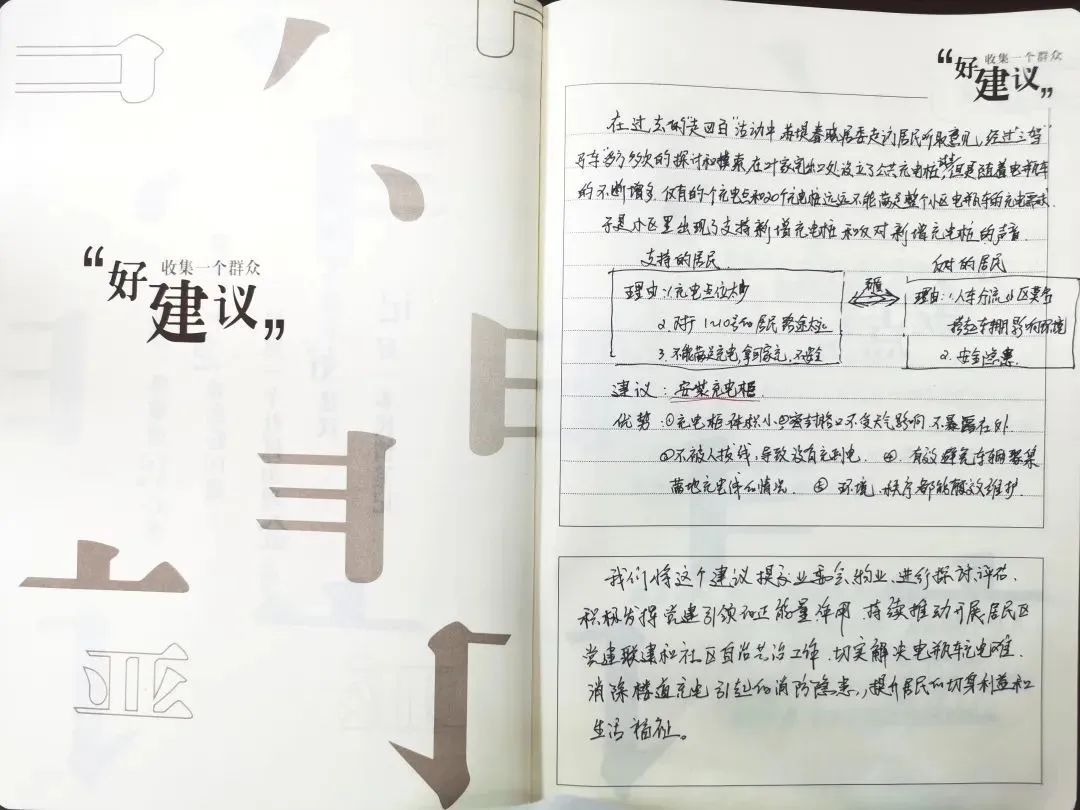 收集一个群众
“好建议”
收集一个群众
“好建议”
在过去的“走四百”活动中 苏堤春晓居委走访居民听取意见,经过“三驾
马车”多次的探讨和摸索,在叶家宅出口处设立了公共充电桩,但是随着电瓶车
的不断增多 仅有的个充电点和20个充电桩远远不能满足整个小区电瓶车的充电需求.
于是小区里出现了支持新增充电桩和反对新增充电桩的声音.
支持的居民 反对的居民
理由:1.充电点位太少 理由:1.人车分流小区要者
2.对于1~10号的居民路途太远 搭起车棚影响环境
3.不能满足充电,拿回家充,不安全 2.安全隐患.
建议:安装充电柜.
优势:①充电柜体积小②密封路口不受天气影响 不暴露在外.
③不被人拔线,导致没有充到电. ④.有效避免车辆聚集
落地充电的情况. ⑤ 环境、秩序都能有效维护
我们将这个建议提交业委会、物业、进行探讨评估.
积极发挥党建引领和正能量作用.持续推动开展居民区
党建联建和社区自治共治工作.切实解决电瓶车充电难.
消除楼道充电引起的消防隐患,提升居民的切身利益和
生活福祉。